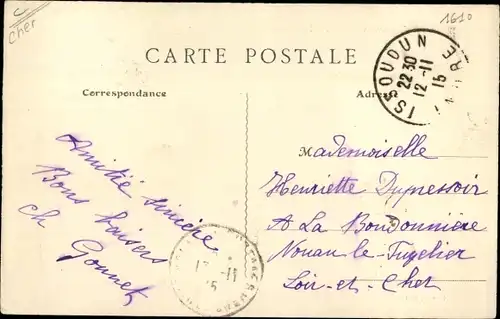 C
Cher
1610
CARTE POSTALE
Correspondance
Adresse
ISSOUDUN
22 30
12 - 11
15
Mademoiselle
Henriette Dupressoir
A La Bondonnière
Nouan-le-Fuzelier
Loir-et-Cher
Amitié sincère
Bons baisers
ch Gonnet
- 11
15